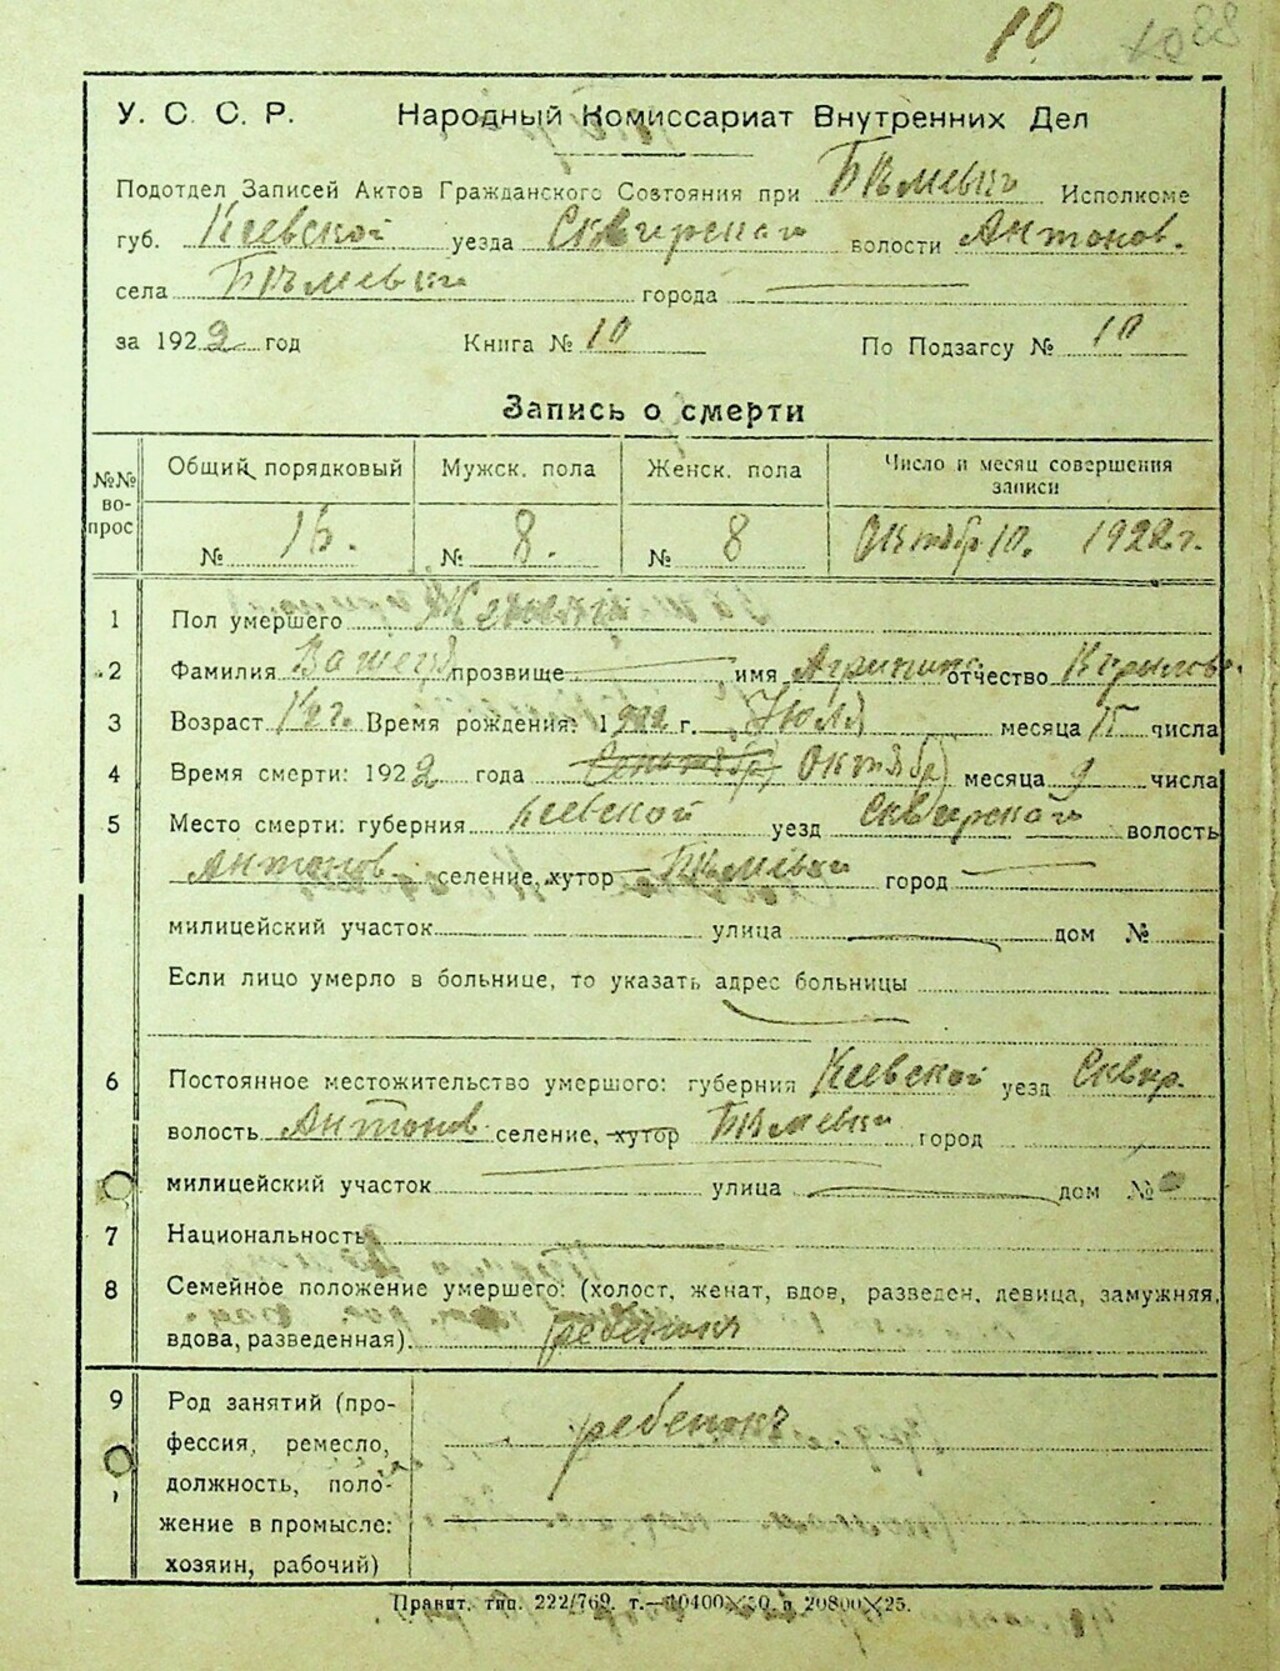 10
У. С. С. Р. Народный Комиссариат Внутренних Дел
Подотдел Записей Актов Гражданского Состояния при Исполкоме
губ. Киевской уезда Сквирского волости Антонов.
села города
за 1922 год Книга № 10 По Подзагсу № 10
Запись о смерти
№№ вопрос Общий порядковый Мужск. пола Женск. пола Число и месяц совершения записи
№ 16. № 8. № 8 Октября 10. 1922 г.
1 Пол умершего Женский
2 Фамилия прозвище имя Агрипина отчество Кирилов.
3 Возраст Время рождения: 1922 г. Июля месяца 15 числа
4 Время смерти: 1922 года Сентября Октября месяца 9 числа
5 Место смерти: губерния Киевской уезд Сквирского волость
Антонов. селение, хутор город
милицейский участок улица дом №
Если лицо умерло в больнице, то указать адрес больницы
6 Постоянное местожительство умершого: губерния Киевской уезд Сквир.
волость Антонов. селение, хутор город
милицейский участок улица дом №
7 Национальность
8 Семейное положение умершего: (холост, женат, вдов, разведен, девица, замужняя,
вдова, разведенная). ребенокъ
9 Род занятий (про-
фессия, ремесло, ребенокъ
должность, поло-
жение в промысле:
хозяин, рабочий)
Правит. тип. 222/769. т.—10400×50. п 20800×25.